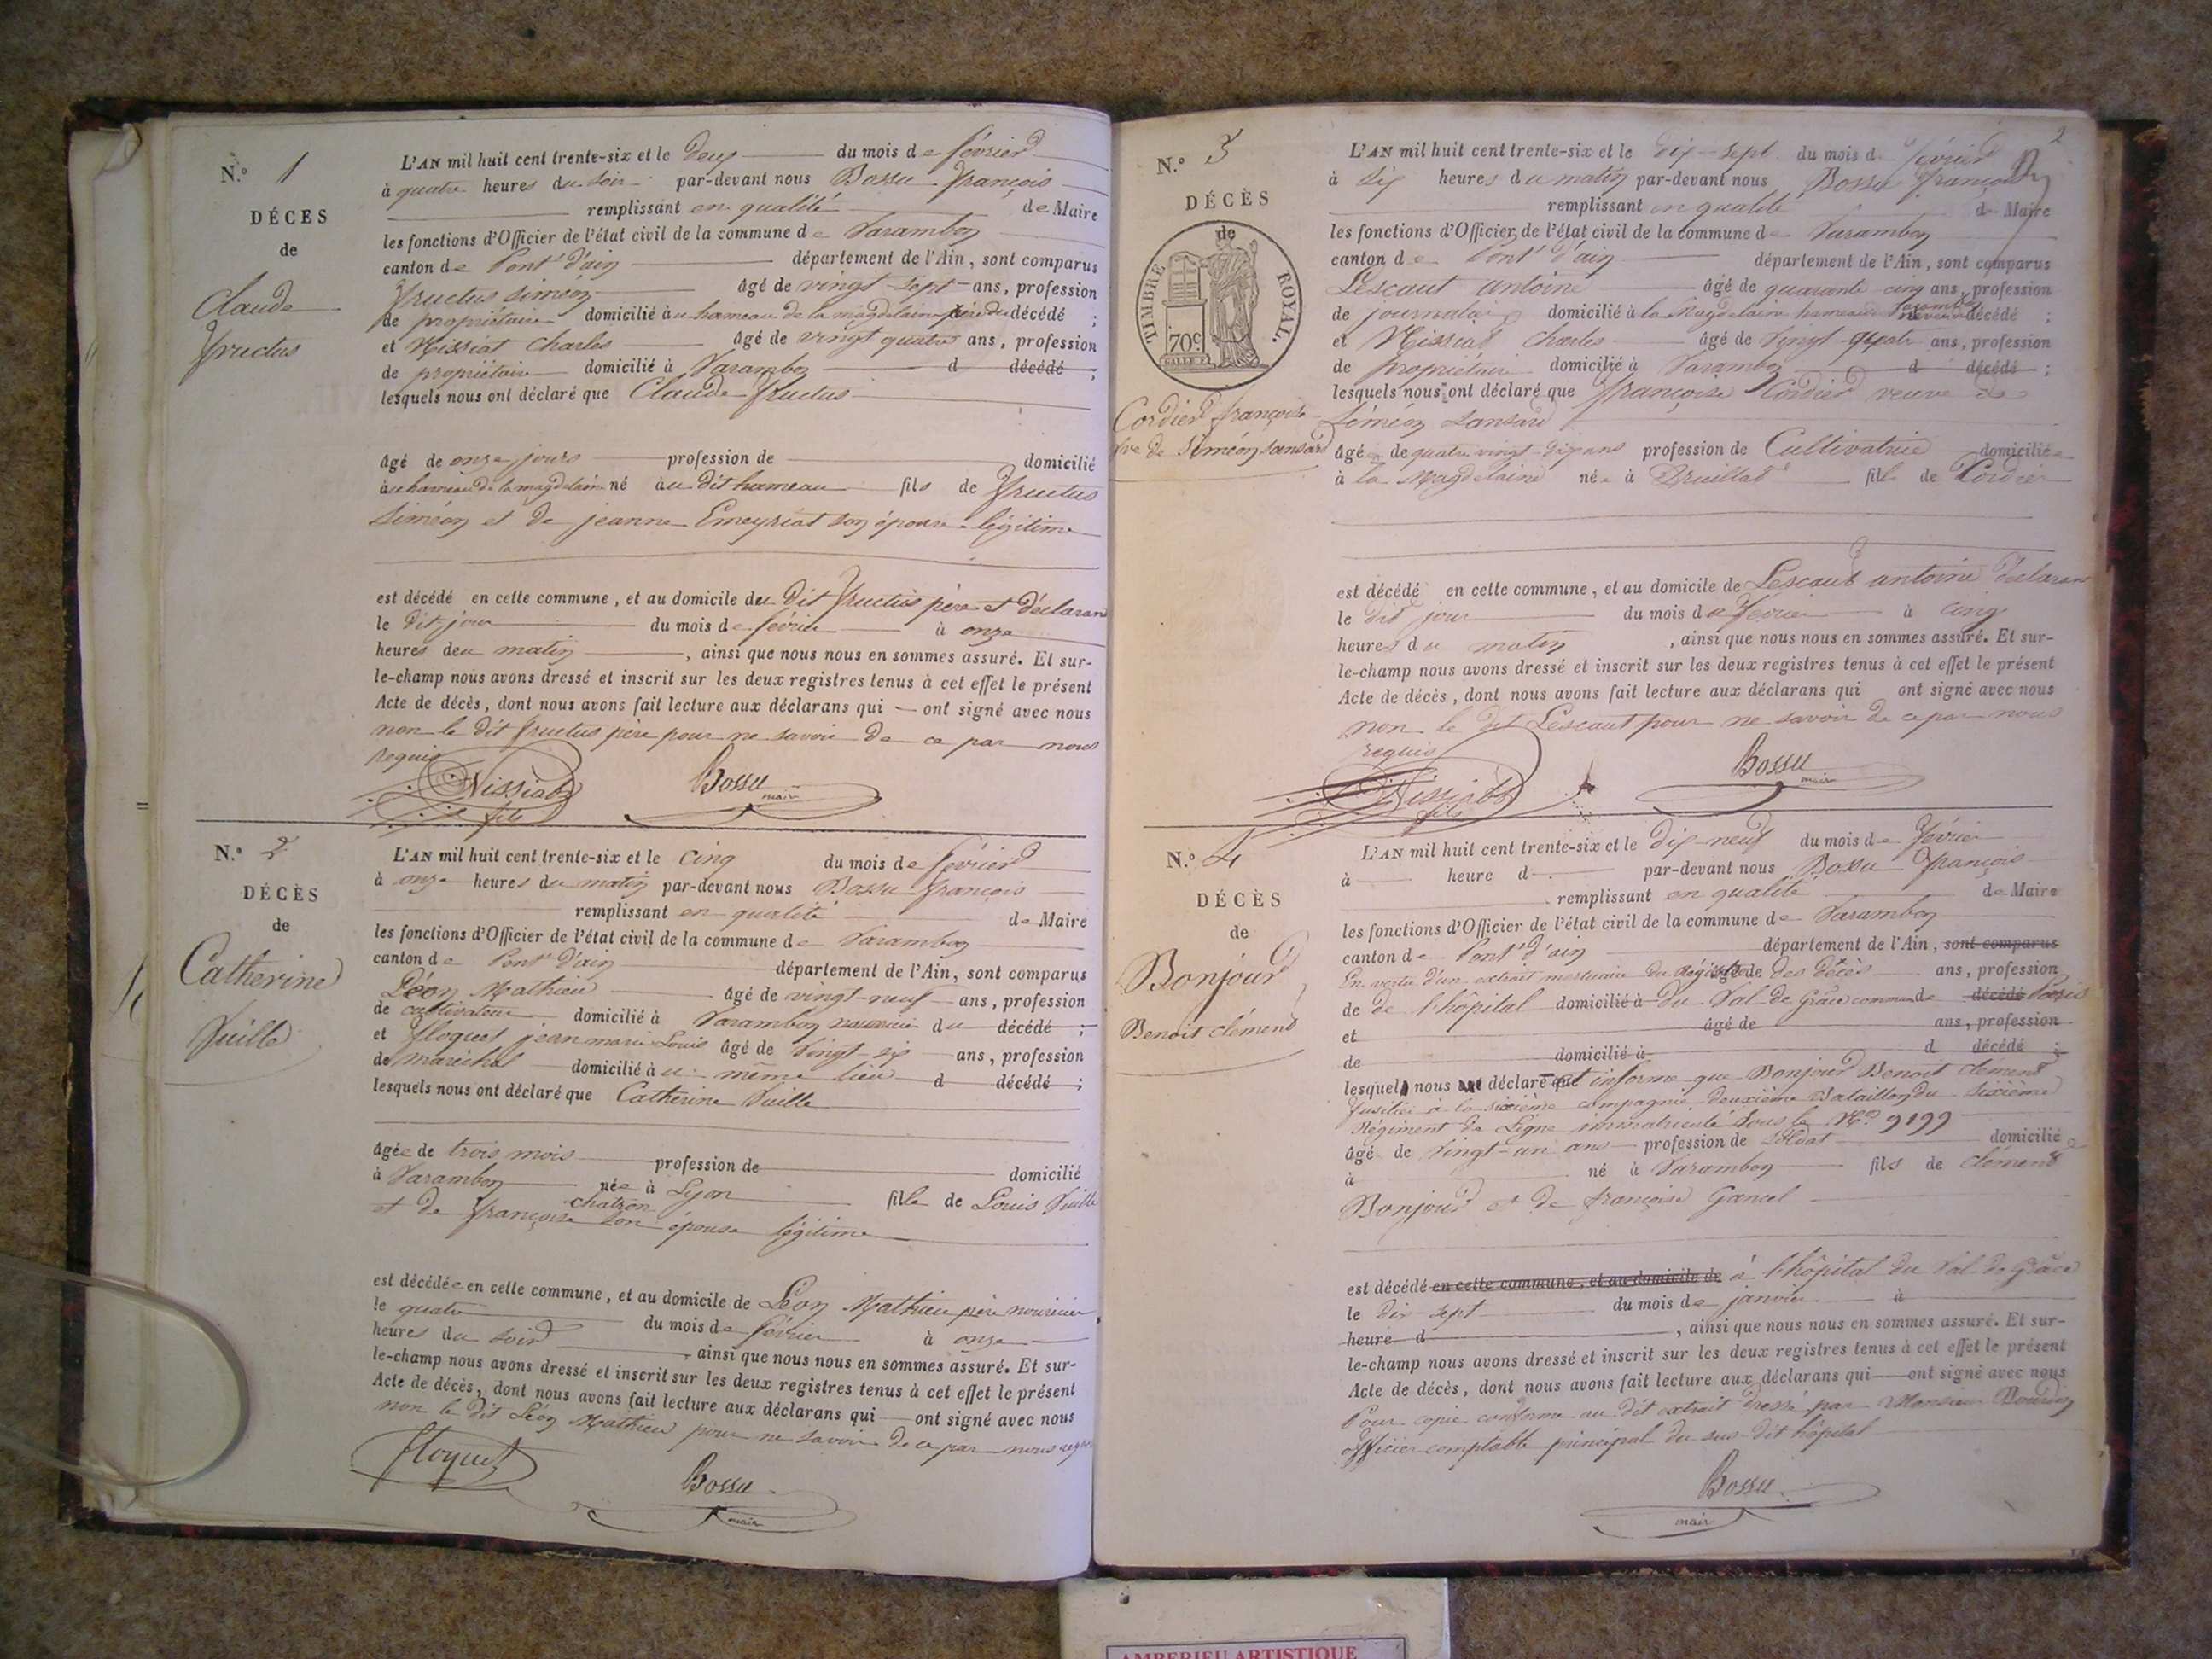 N.º 1
DÉCES
de
Claude
Fructus
L'AN mil huit cent trente-six et le deux du mois de février
à quatre heures du soir par-devant nous Bossu françois
remplissant en qualité de Maire
les fonctions d'Officier de l'état civil de la commune de Varambon
canton de Pont d'ain département de l'Ain, sont comparus
fructus simeon âgé de vingt-sept ans, profession
de propriétaire domicilié au hameau de la magdelaine père du décédé ;
et Nissiat Charles âgé de vingt quatre ans, profession
de propriétaire domicilié à Varambon d décédé ;
lesquels nous ont déclaré que Claude fructus
âgé de onze jours profession de domicilié
au hameau de la magdelaine né au dit hameau fils de fructus
Siméon et de jeanne Emeyriat son épouse légitime
est décédé en cette commune, et au domicile deu dit fructus père et déclarant
le dit jour du mois de février à onze
heures deu matin, ainsi que nous nous en sommes assuré. Et sur-
le-champ nous avons dressé et inscrit sur les deux registres tenus à cet effet le présent
Acte de décès, dont nous avons fait lecture aux déclarans qui ont signé avec nous
non le dit fructus père pour ne savoir de ce par nous
requis
Nissiat
fils
Bossu
mair
N.º 2
DÉCÈS
de
Catherine
Vuille
L'AN mil huit cent trente-six et le cinq du mois de février
à onze heures du matin par-devant nous Bossu françois
remplissant en qualité de Maire
les fonctions d'Officier de l'état civil de la commune de Varambon
canton de Pont d'ain département de l'Ain, sont comparus
Léon Mathieu âgé de vingt-neuf ans, profession
de cultivateur domicilié à Varambon du décédé ;
et floquet jean marie Louis âgé de vingt-six ans, profession
de maréchal domicilié au même lieu d décédé ;
lesquels nous ont déclaré que Catherine Vuille
âgée de trois mois profession de domicilié
à Varambon née à Lyon fille de Louis Vuille
et de françoise chatron son épouse légitime
est décédée en cette commune, et au domicile de Léon Mathieu père nouricier
le quatre du mois de février à onze
heures du soir, ainsi que nous nous en sommes assuré. Et sur-
le-champ nous avons dressé et inscrit sur les deux registres tenus à cet effet le présent
Acte de décès, dont nous avons fait lecture aux déclarans qui ont signé avec nous
non le dit Léon Mathieu pour ne savoir de ce par nous
floquet
Bossu
mair
2
N.º 3
DÉCÈS
de
TIMBRE ROYAL.
70c
Cordier françoise
Vve de Siméon Sansard
L'AN mil huit cent trente-six et le dix-sept du mois de février
à dix heures du matin par-devant nous Bossu françois
remplissant en qualité de Maire
les fonctions d'Officier de l'état civil de la commune de Varambon
canton de Pont d'ain département de l'Ain, sont comparus
Lescaut antoine âgé de quarante cinq ans, profession
de journalier domicilié à la Magdelaine hameau décédé ;
et Nissiat Charles âgé de vingt-quatre ans, profession
de propriétaire domicilié à Varambon d décédé ;
lesquels nous ont déclaré que françoise Cordier veuve de
Siméon Sansard
âgée de quatre vingt-dix ans profession de Cultivatrice domiciliée
à la Magdelaine née à Druillat fille de Cordier
est décédé en cette commune, et au domicile de Lescaut antoine déclarant
le dit jour du mois de février à cinq
heures du matin, ainsi que nous nous en sommes assuré. Et sur-
le-champ nous avons dressé et inscrit sur les deux registres tenus à cet effet le présent
Acte de décès, dont nous avons fait lecture aux déclarans qui ont signé avec nous
non le dit Lescaut pour ne savoir de ce par nous
requis
Nissiat
fils
Bossu
mair
N.º 4
DÉCÈS
de
Bonjour
Benoit clément
L'AN mil huit cent trente-six et le dix-neuf du mois de février
à heure d par-devant nous Bossu françois
remplissant en qualité de Maire
les fonctions d'Officier de l'état civil de la commune de Varambon
canton de Pont d'ain département de l'Ain, sont comparus
En vertu d'un extrait mortuaire du Régistre âgé de des décès ans, profession
de de l'hôpital domicilié à du Val de Grâce commune de décédé Paris
et âgé de ans, profession
de domicilié à d décédé ;
lesquel nous ont déclaré que et informe que Bonjour Benoit clément
fusilier à la sixième compagnie deuxième Bataillon du sixième
Régiment de Ligne immatriculé sous le N.º 9199
âgé de vingt-un ans profession de soldat domicilié
à né à Varambon fils de clément
Bonjour et de françoise Gancel
est décédé en cette commune, et au domicile de à l'hôpital du Val de Grâce
le dix sept du mois de janvier à
heure d, ainsi que nous nous en sommes assuré. Et sur-
le-champ nous avons dressé et inscrit sur les deux registres tenus à cet effet le présent
Acte de décès, dont nous avons fait lecture aux déclarans qui ont signé avec nous
Pour copie conforme au dit extrait dressé par Monsieur
officier comptable principal du sus-dit hôpital
Bossu
mair
AMBERIEU ARTISTIQUE